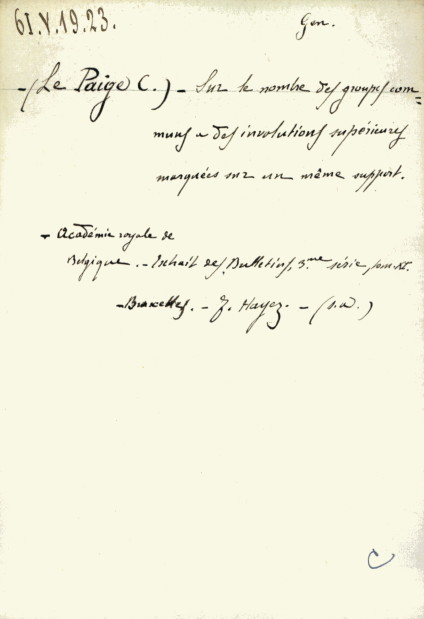 61.V.19.23.
Gen.
-(Le Paige C.) - Sur le nombre des groupes com=
muns a des involutions supérieures
marquées sur un même support.
- Académie royale de
Belgique. - Extrait des Bulletins, 3.me série, tom. XI.
- Bruxelles. - F. Hayez. - (s.a.)
C